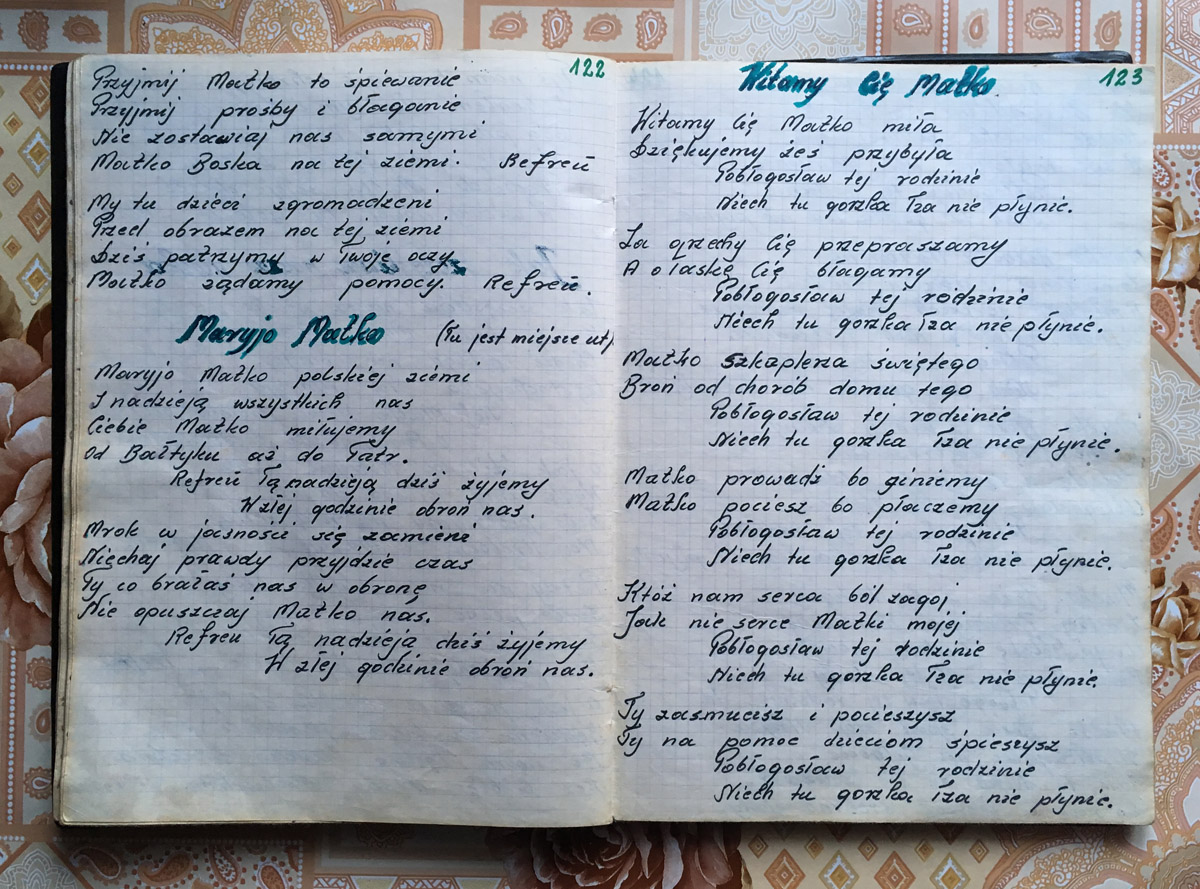 122
Przyjmij Matko to śpiewanie
Przyjmij prośby i błaganie
Nie zostawiaj nas samymi
Matko Boska na tej ziemi. Refreń
My tu dzieci zgromadzeni
Przed obrazem na tej ziemi
Dziś patrzymy w Twoje oczy
Matko żądamy pomocy. Refreń.
Maryjo Matko (Tu jest miejsce ut)
Maryjo Matko polskiej ziemi
I nadzieją wszystkich nas
Ciebie Matko miłujemy
Od Bałtyku aż do Tatr.
Refreń Tą nadzieją dziś żyjemy
W złej godzinie obroń nas.
Mrok w jasności się zamieni
Niechaj prawdy przyjdzie czas
Ty co brałaś nas w obronę
Nie opuszczaj Matko nas.
Refreń Tą nadzieją dziś żyjemy
W złej godzinie obroń nas.
123
Witamy Cię Matko.
Witamy Cię Matko miła
Dziękujemy żeś przybyła
Pobłogosław tej rodzinie
Niech tu gorzka łza nie płynie.
Za grzechy Cię przepraszamy
A o łaskę Cię błagamy
Pobłogosław tej rodzinie
Niech tu gorzka łza nie płynie.
Matko szkaplerza świętego
Broń od chorób domu tego
Pobłogosław tej rodzinie
Niech tu gorzka łza nie płynie.
Matko prowadź bo giniemy
Matko pociesz bo płaczemy
Pobłogosław tej rodzinie
Niech tu gorzka łza nie płynie.
Któż nam serca ból zagoj
Jak nie serce Matki mojej
Pobłogosław tej rodzinie
Niech tu gorzka łza nie płynie.
Ty zasmucisz i pocieszysz
Ty na pomoc dzieciom śpieszysz
Pobłogosław tej rodzinie
Niech tu gorzka łza nie płynie.